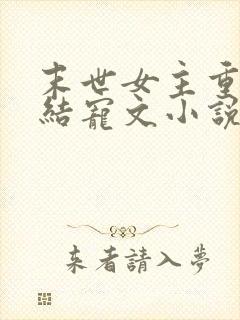 末世女主重
結寵文小説
来者請入夢